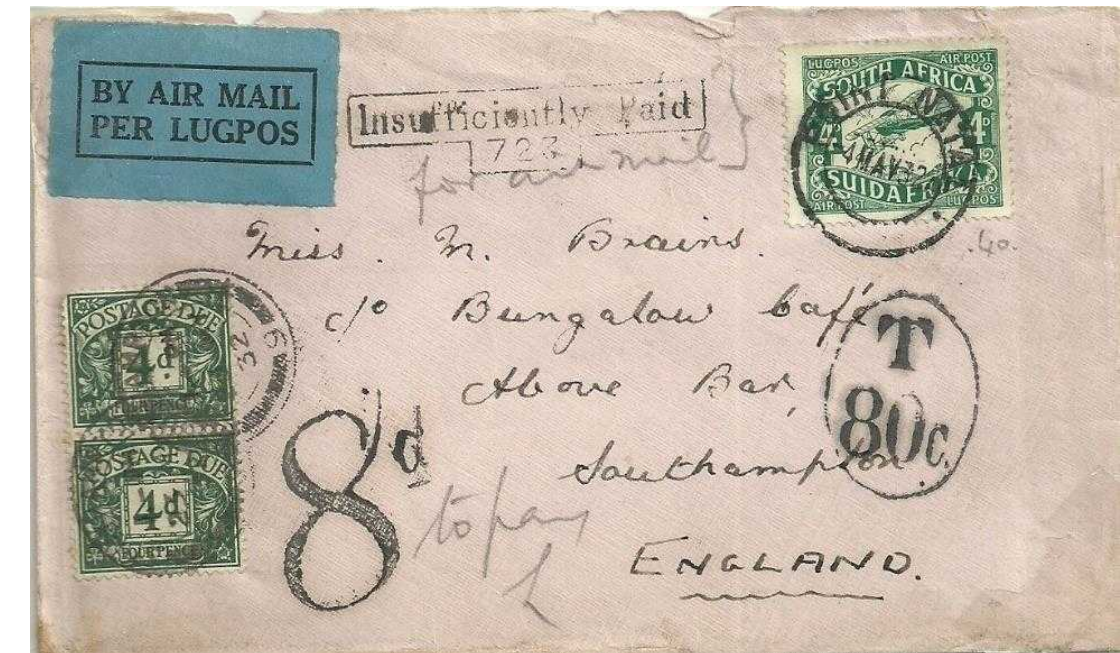 BY AIR MAIL
PER LUGPOS
Insufficiently Paid
723
for air mail
LUGPOS AIR POST
SOUTH AFRICA
4D 4D
SUIDAFRIKA
AIR POST LUGPOS
POINT NATAL
4 MAY 32
.40.
Miss. M. Brains.
c/o Bungalow Café
Above Bar,
Southampton
ENGLAND.
T
80c.
POSTAGE DUE
4d
FOUR PENCE
32
POSTAGE DUE
4d
FOUR PENCE
8d
to pay